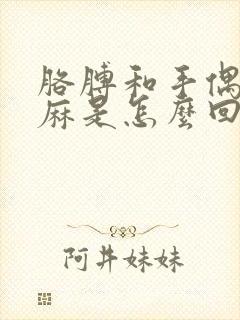 胳膊和手偶
麻是怎麼回
阿井妹妹